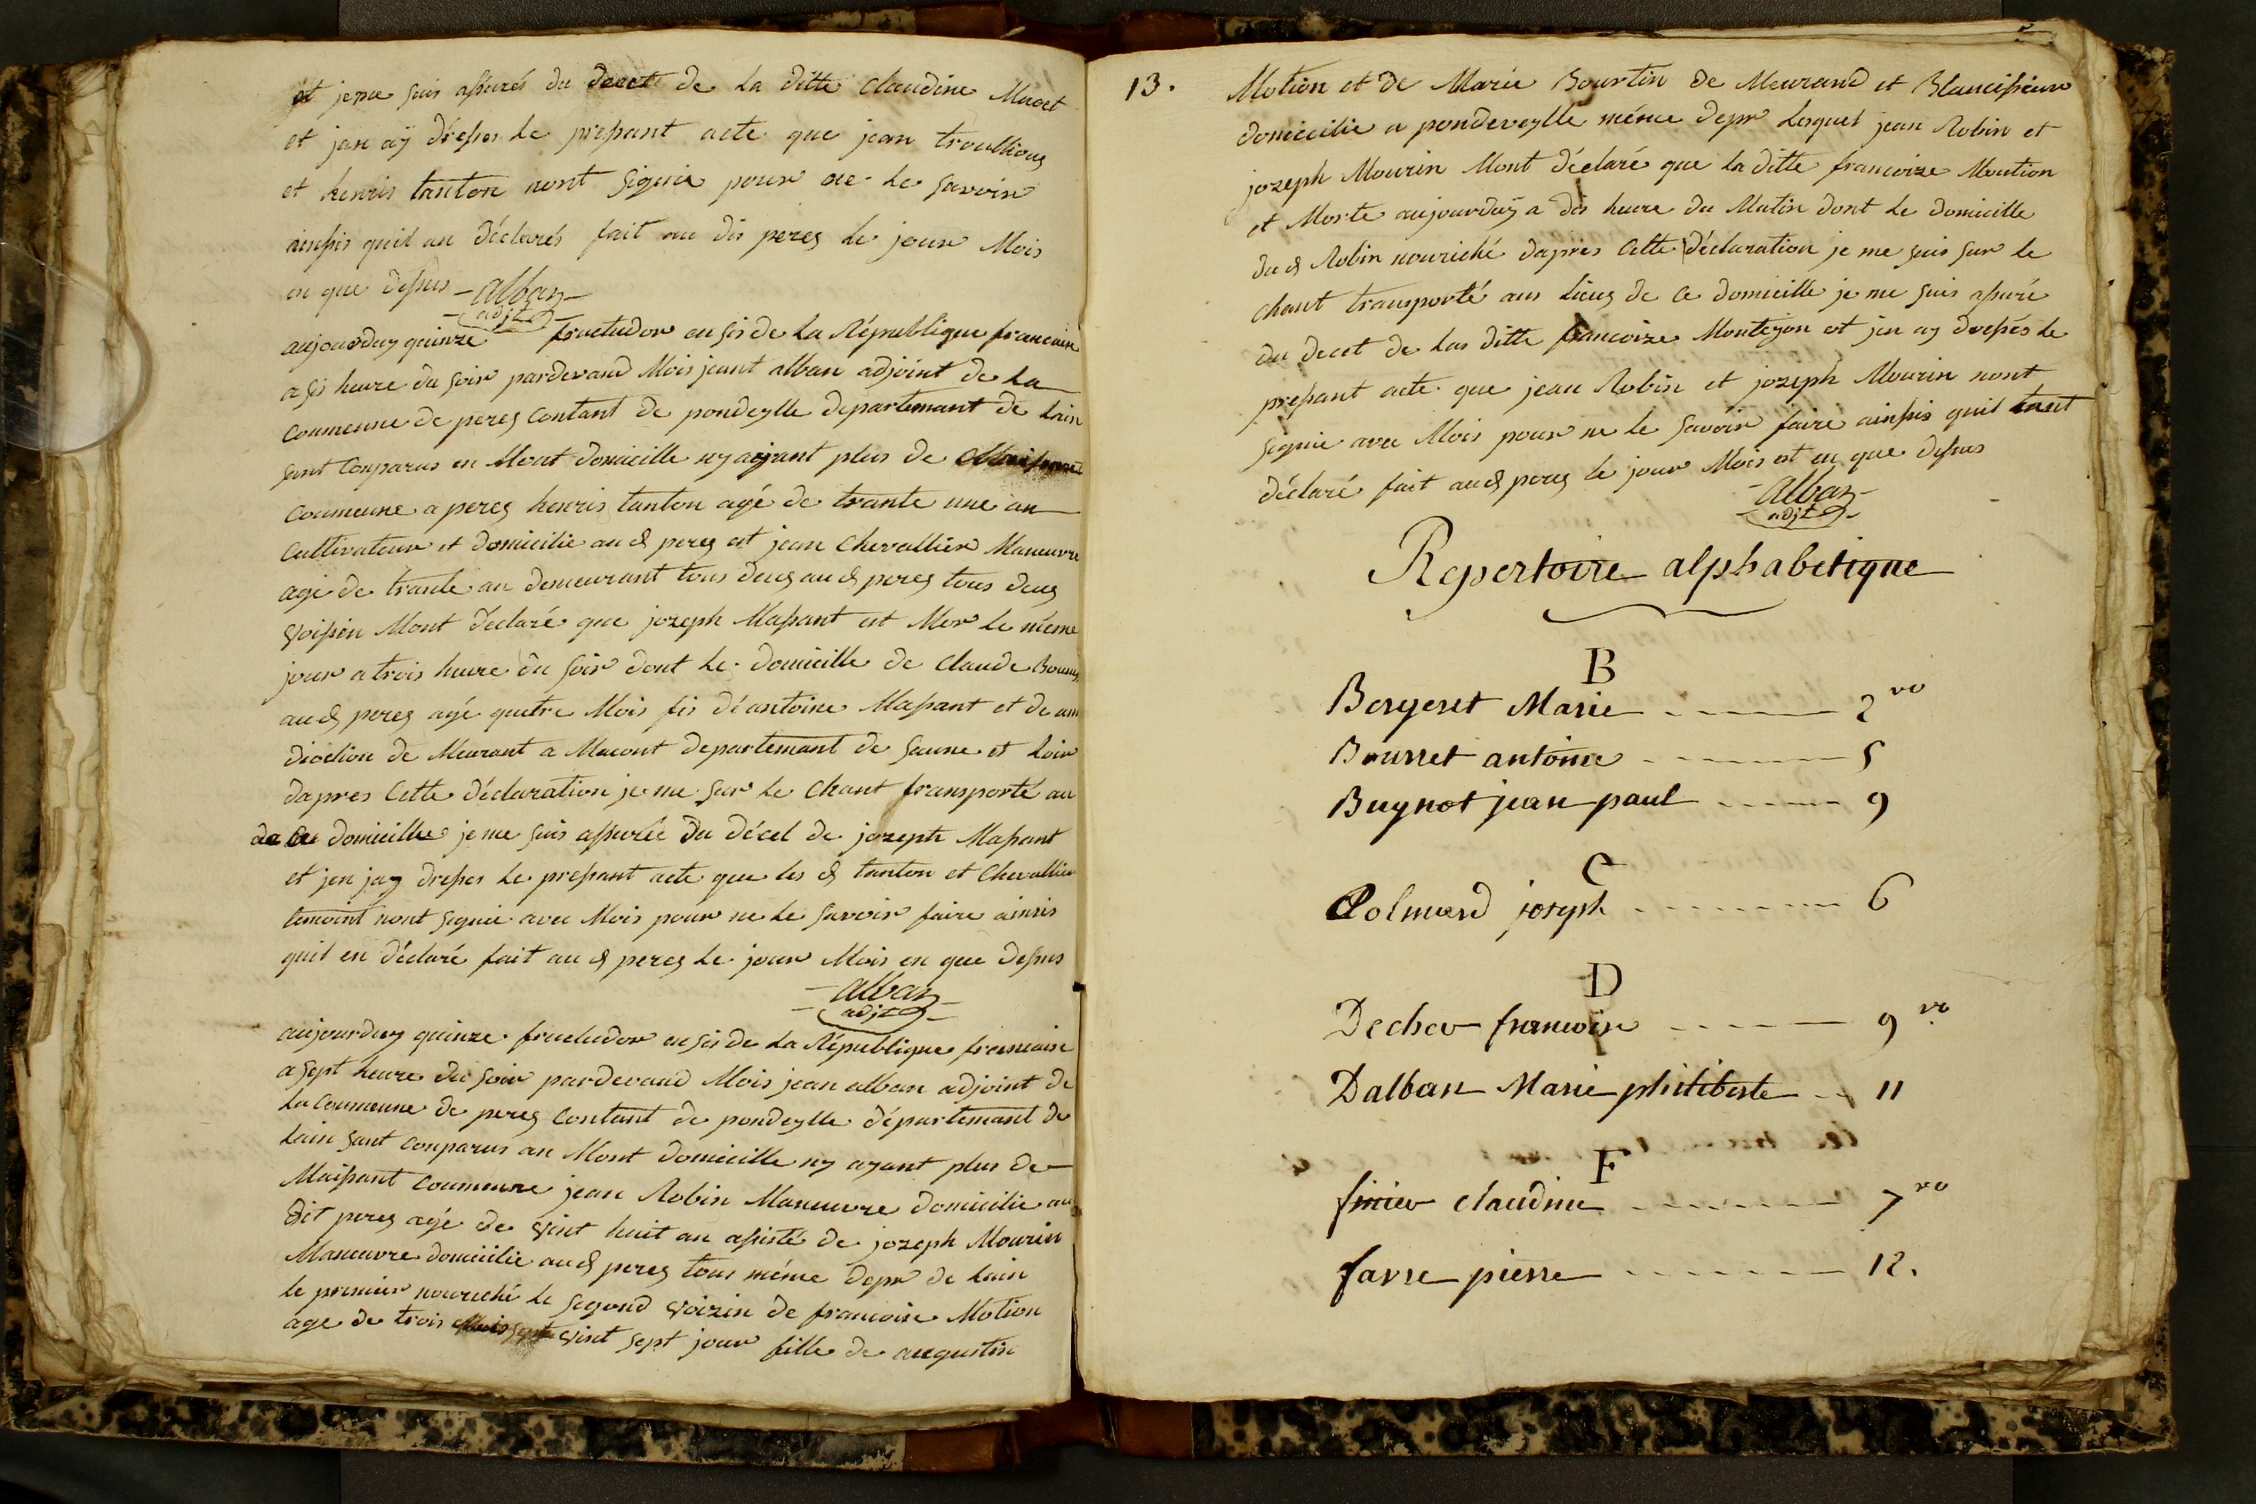 et jeme suis assurés du decet de la ditte Claudine Macet
et jan aÿ dresser le pressant acte que jean troullioux
et henris tanton nont signie pour ne le savoir
ainssis quil an déclarés fait au dis perez le jour Mois
en que dessus - alban -
adjt
aujourduy quinze fructudor ensis de la République francaise
a sis heure du soir pardevand Mois jeant alban adjoint de la
Coumeune de perez Contant de pondeylle departemant de lain
sont Conparus en Mont domicille ny aÿant plus de Maissant
Coumeune a perez henris tanton agé de trante une an
Cultivateur et domicilie au d perez et jean Chevallier Maneuvre
age de trante an demeurant tous deux au d perez tous deux
Voissin Mont déclaré que jozeph Massant est Mor le même
jour a trois heure du soir dont le domicille de Claude
au d perez agé quatre Mois fis de antoine Massant et de
de Meurant a Macont departemant de Saune et Loir
dapres Cette déclaration je me sur le Chant transporté au
de ce domicille je me suis assurée du décet de jozeph Massant
et jen jay dresser le pressant acte que les d tanton et Chevallier
temoint nont signie avec Mois pour ne le savoir faire ainsis
quil en déclaré fait au d perez le jour Mois en que dessus
- alban -
adjt
aujourduy quinze fructudor ensis de la République francaise
a sept heure du soir pardevand Mois jean alban adjoint de
la Coumeune de perez Contant de pondeylle départemant de
lain sont Conparus an Mont domicille ny ayant plus de
Maissant Coumeune jean Robin Maneuvre domicilie au
dit perez agé de Vint huit an assisté de jozeph Mourin
Maneuvre domicilie au d perez tous même depr de lain
le premier nouriché le segond Voizin de francoise Motion
age de trois Mois Vint sept jour fille de augustin
13.
Motion et de Marie Bourtin de Meurand et Blancisseur
domicilie a pondeveylle même depr lesquel jean Robin et
jozeph Mourin Mont déclaré que la ditte francoize Moution
et Morte aujourduÿ a dis heure du Matin dont le domicille
du d Robin nouriché dapres Cette déclaration je me suis sur le
Chant transporté aus lieux de ce domicille je me suis assuré
du decet de las ditte francoize Monteyon et jen ay dressés le
pressant acte que jean Robin et jozeph Mourin nont
signie avec Mois pour ne le savoir faire ainssis quil tant
déclaré fait au d perez le jour Mois et en que dessus
- alban -
adjt
Repertoire alphabetique
B
Bergeret Marie 2 vo
Bourret antoine 5
Buynot jean paul 9
C
Colmard joseph 6
D
Decher francoise 9 vo
Dalban Marie philiberte 11
F
claudine 7 vo
favre pierre 12.